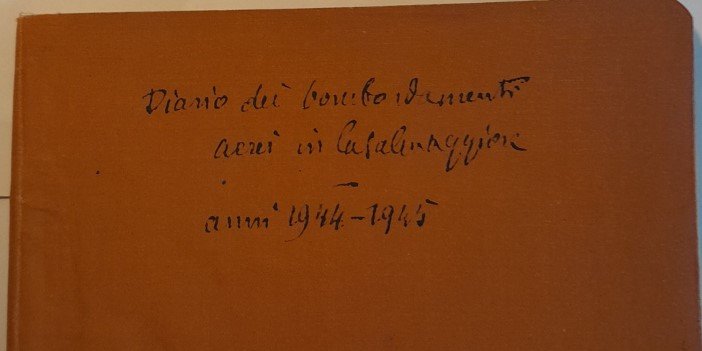 Diario dei bombardamenti
aerei in Casalmaggiore
anni 1944-1945